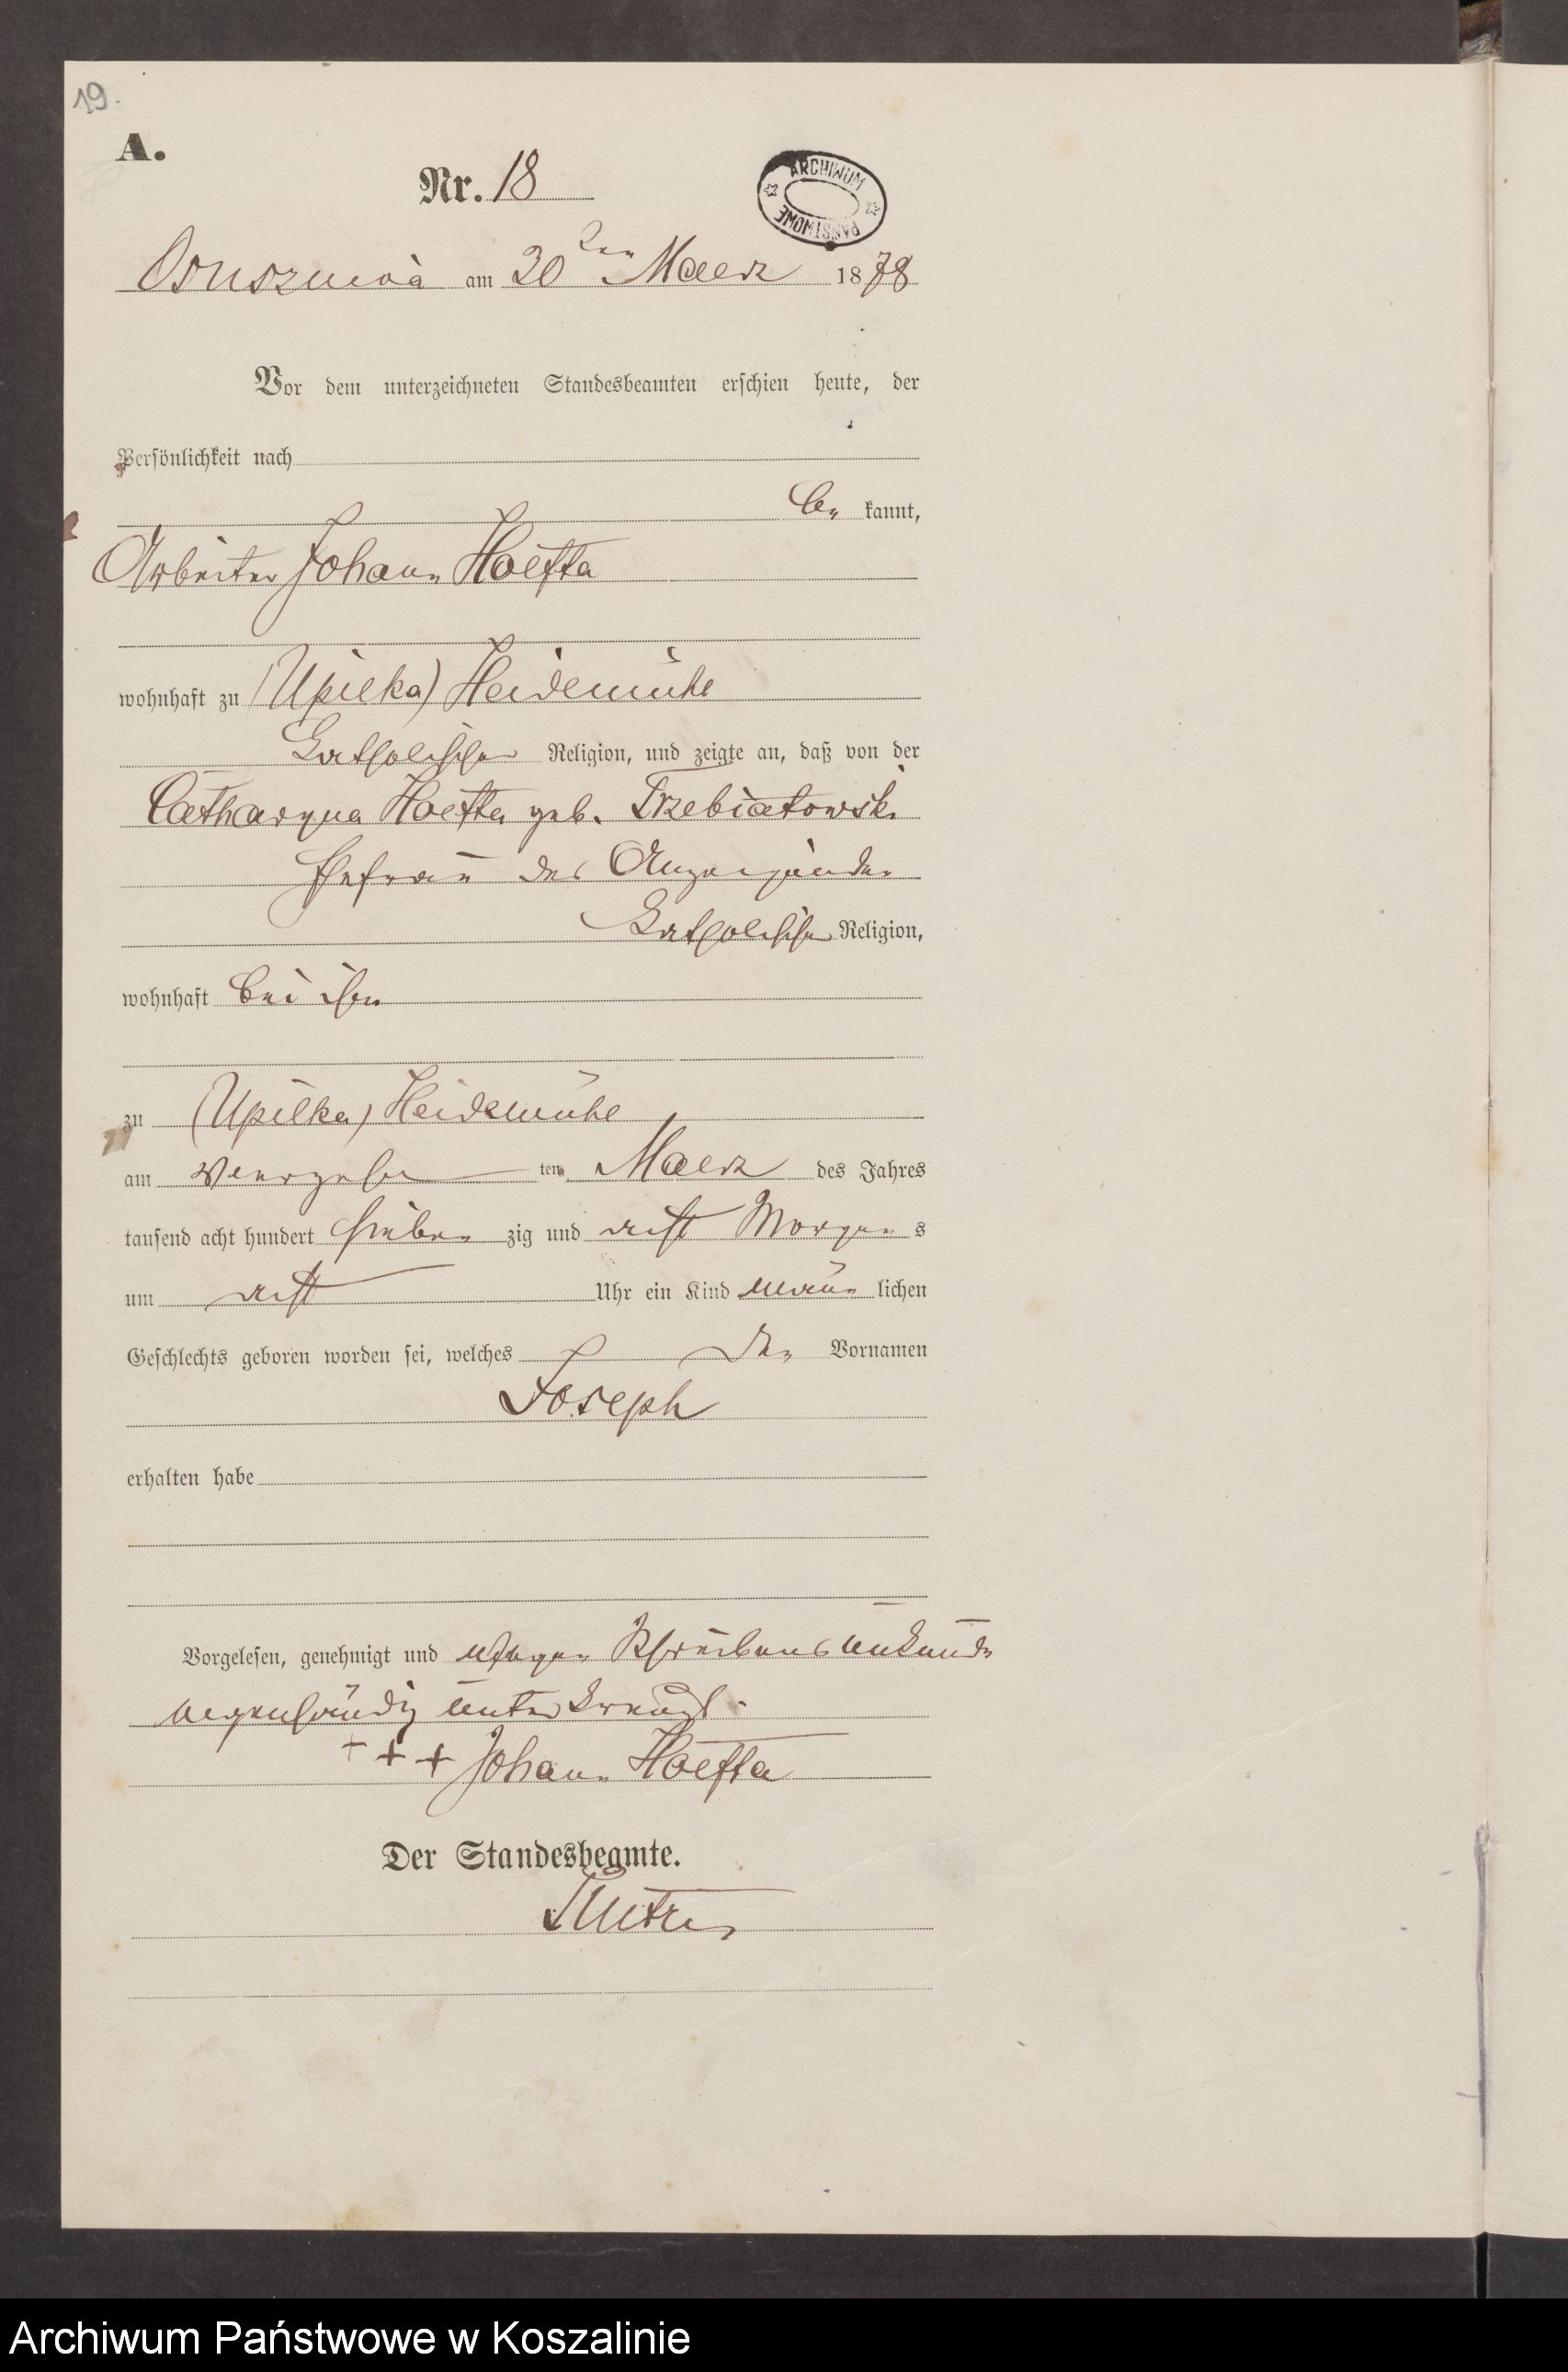 19.
A.
Nr. 18
ARCHIWUM PAŃSTWOWE
Osusznica am 20ten Maerz 1878
Vor dem unterzeichneten Standesbeamten erschien heute, der
Persönlichkeit nach
be kannt,
Arbeiter Johann Hoefta
wohnhaft zu (Upilka) Heidemühl
katholischer Religion, und zeigte an, daß von der
Catharyna Hoefta geb. Trzebiatowski
Ehefrau des Anzeigenden
katholischer Religion,
wohnhaft bei ihm
zu (Upilka) Heidemühl
am vierzehn ten Maerz des Jahres
tausend acht hundert sieben zig und acht Morgen s
um acht Uhr ein Kind männ lichen
Geschlechts geboren worden sei, welches den Vornamen
Joseph
erhalten habe
Vorgelesen, genehmigt und wegen Schreibensunkunde
eigenhändig unterkreuzt.
+ + + Johann Hoefta
Der Standesbeamte.
Archiwum Państwowe w Koszalinie